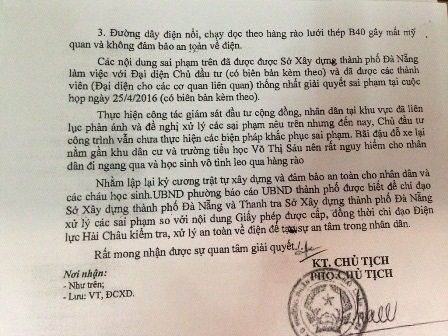 3. Đường dây điện nổi, chạy dọc theo hàng rào lưới thép B40 gây mất mỹ
quan và không đảm bảo an toàn về điện.
Các nội dung sai phạm trên đã được được Sở Xây dựng thành phố Đà Nẵng
làm việc với Đại diện Chủ đầu tư (có biên bản kèm theo) và đã được các thành
viên (Đại diện cho các cơ quan liên quan) thống nhất giải quyết sai phạm tại cuộc
họp ngày 25/4/2016 (có biên bản kèm theo).
Thực hiện công tác giám sát đầu tư cộng đồng, nhân dân tại khu vực đã liên
tục phản ánh và đề nghị xử lý các sai phạm nêu trên nhưng đến nay, Chủ đầu tư
công trình vẫn chưa thực hiện các biện pháp khắc phục sai phạm. Bãi đậu đỗ xe lại
nằm gần khu dân cư và trường tiểu học Võ Thị Sáu nên rất nguy hiểm cho nhân
dân đi ngang qua và học sinh vô tình leo qua hàng rào
Nhằm lập lại kỷ cương trật tự xây dựng và đảm bảo an toàn cho nhân dân và
các cháu học sinh.UBND phường báo cáo UBND thành phố được biết để chỉ đạo
Sở Xây dựng thành phố Đà Nẵng và Thanh tra Sở Xây dựng thành phố Đà Nẵng
xử lý các sai phạm so với nội dung Giấy phép được cấp, đồng thời chỉ đạo Điện
lực Hải Châu kiểm tra, xử lý an toàn về điện để tạo sự an tâm trong nhân dân.
Rất mong nhận được sự quan tâm giải quyết./.
Nơi nhận:
- Như trên;
- Lưu: VT, ĐCXD.
KT. CHỦ TỊCH
PHÓ CHỦ TỊCH